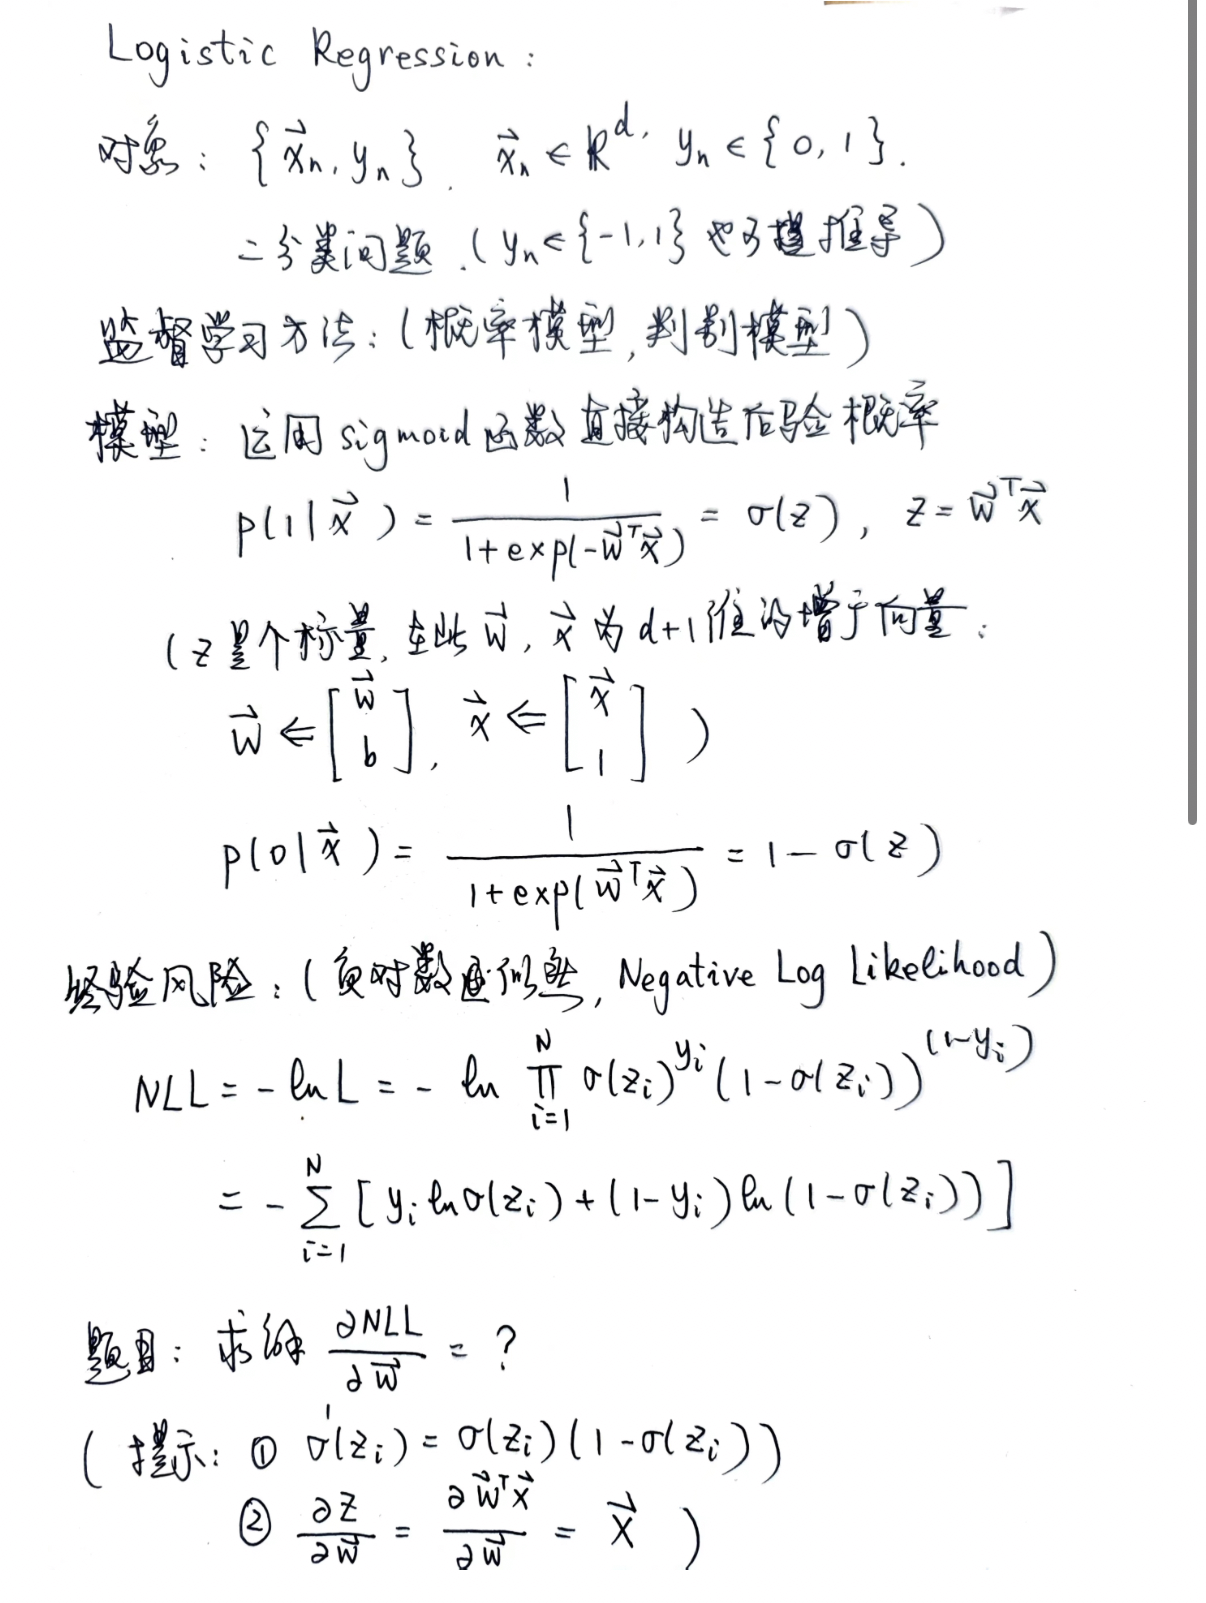 Logistic Regression:
对象: {x⃗ₙ, yₙ}. x⃗ₙ ∈ ℝᵈ, yₙ ∈ {0, 1}.
二分类问题.(yₙ∈{-1,1} 也可推导)
监督学习方法:(概率模型,判别模型)
模型: 运用 sigmoid 函数直接构造后验概率
p(1|x⃗) = 1/(1+exp(-w⃗ᵀx⃗)) = σ(z), z = w⃗ᵀx⃗
(z是个标量,在此 w⃗, x⃗ 为 d+1 维的增广向量:
w⃗ ⇐ [w⃗ b], x⃗ ⇐ [x⃗ 1])
p(0|x⃗) = 1/(1+exp(w⃗ᵀx⃗)) = 1 - σ(z)
经验风险:(负对数似然, Negative Log Likelihood)
NLL = -ln L = - ln ∏ᵢ₌₁ᴺ σ(zᵢ)^yᵢ (1-σ(zᵢ))^(1-yᵢ)
= - ∑ᵢ₌₁ᴺ [yᵢ ln σ(zᵢ) + (1-yᵢ) ln (1-σ(zᵢ))]
题目: 求解 ∂NLL/∂w⃗ = ?
(提示: ① σ'(zᵢ) = σ(zᵢ)(1-σ(zᵢ))
② ∂z/∂w⃗ = ∂w⃗ᵀx⃗/∂w⃗ = x⃗ )